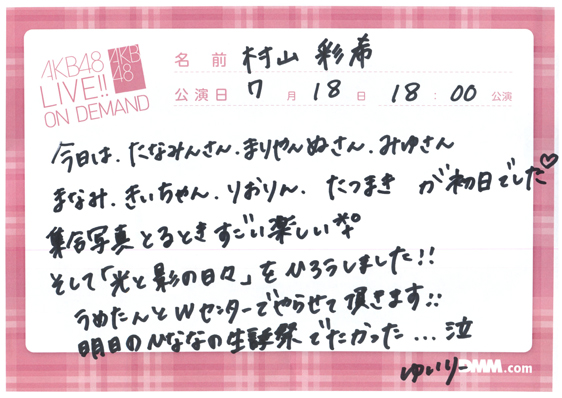 AKB48
LIVE!!
ON DEMAND
AKB
48
名前 村山 彩希
公演日 7月18日 18:00公演
今日は、たなみんさん、まりやんぬさん、みゆさん
まなみ、きいちゃん、りおりん、たつまき が初日でした♡
集合写真とるときすごい楽しい
そして「光と影の日々」をひろうしました!!
うめたんとWセンターでやらせて頂きます!!
明日のひななの生誕祭でたかった...泣
ゆいりー
DMM.com